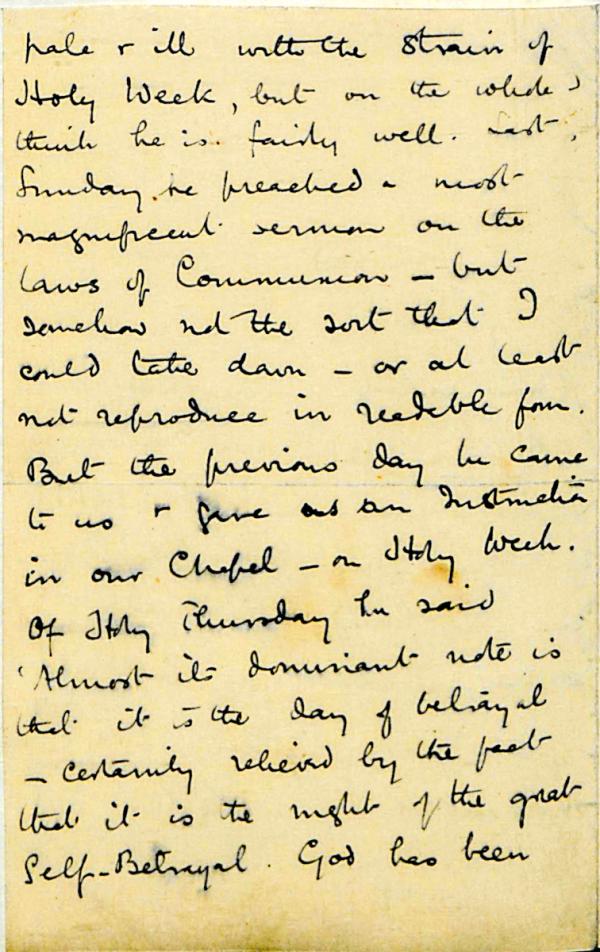 pale & ill with the strain of
Holy Week, but on the whole I
think he is fairly well. Last
Sunday he preached a most
magnificent sermon on the
laws of Communion – but
somehow not the sort that I
could take down – or at least
not reproduce in readable form.
But the previous day he came
to us & gave us an Instruction
in our Chapel – on Holy Week.
Of Holy Thursday he said
'Almost its dominant note is
that it is the day of betrayal
– certainly relieved by the fact
that it is the night of the great
Self-Betrayal. God has been